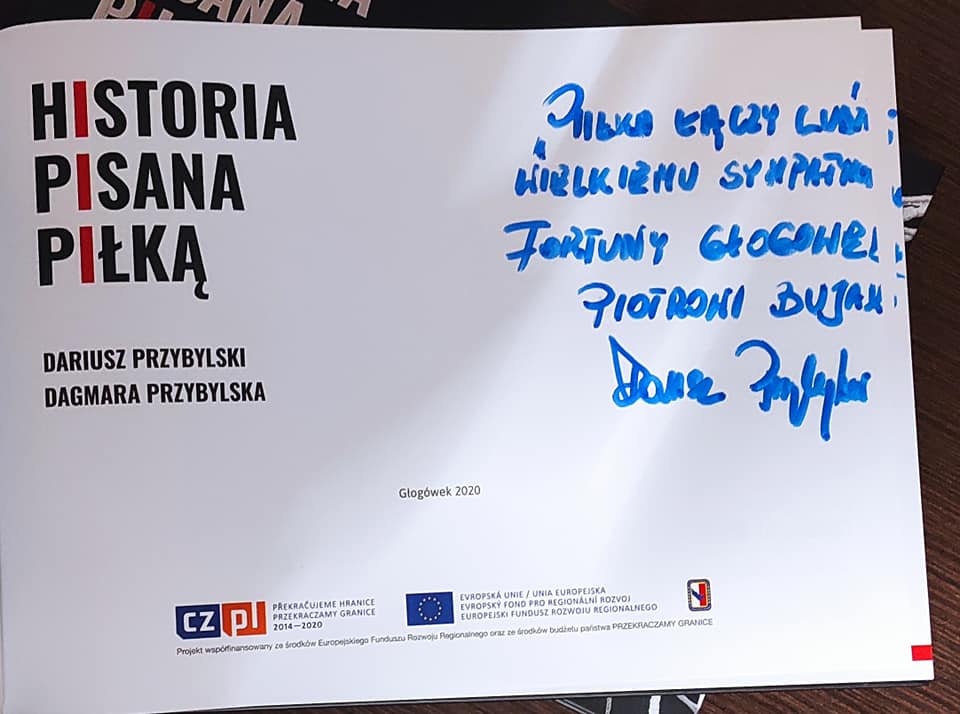 HISTORIA
PISANA
PIŁKĄ
DARIUSZ PRZYBYLSKI
DAGMARA PRZYBYLSKA
PIŁKA ŁĄCZY
WIELKIEMU
FORTUNY
PIOTROWI
Głogówek 2020
cz pl
PŘEKRAČUJEME HRANICE
PRZEKRACZAMY GRANICE
2014—2020
EVROPSKÁ UNIE / UNIA EUROPEJSKA
EVROPSKÝ FOND PRO REGIONÁLNÍ ROZVOJ
EUROPEJSKI FUNDUSZ ROZWOJU REGIONALNEGO
Projekt współfinansowany ze środków Europejskiego Funduszu Rozwoju Regionalnego oraz ze środków budżetu państwa PRZEKRACZAMY GRANICE